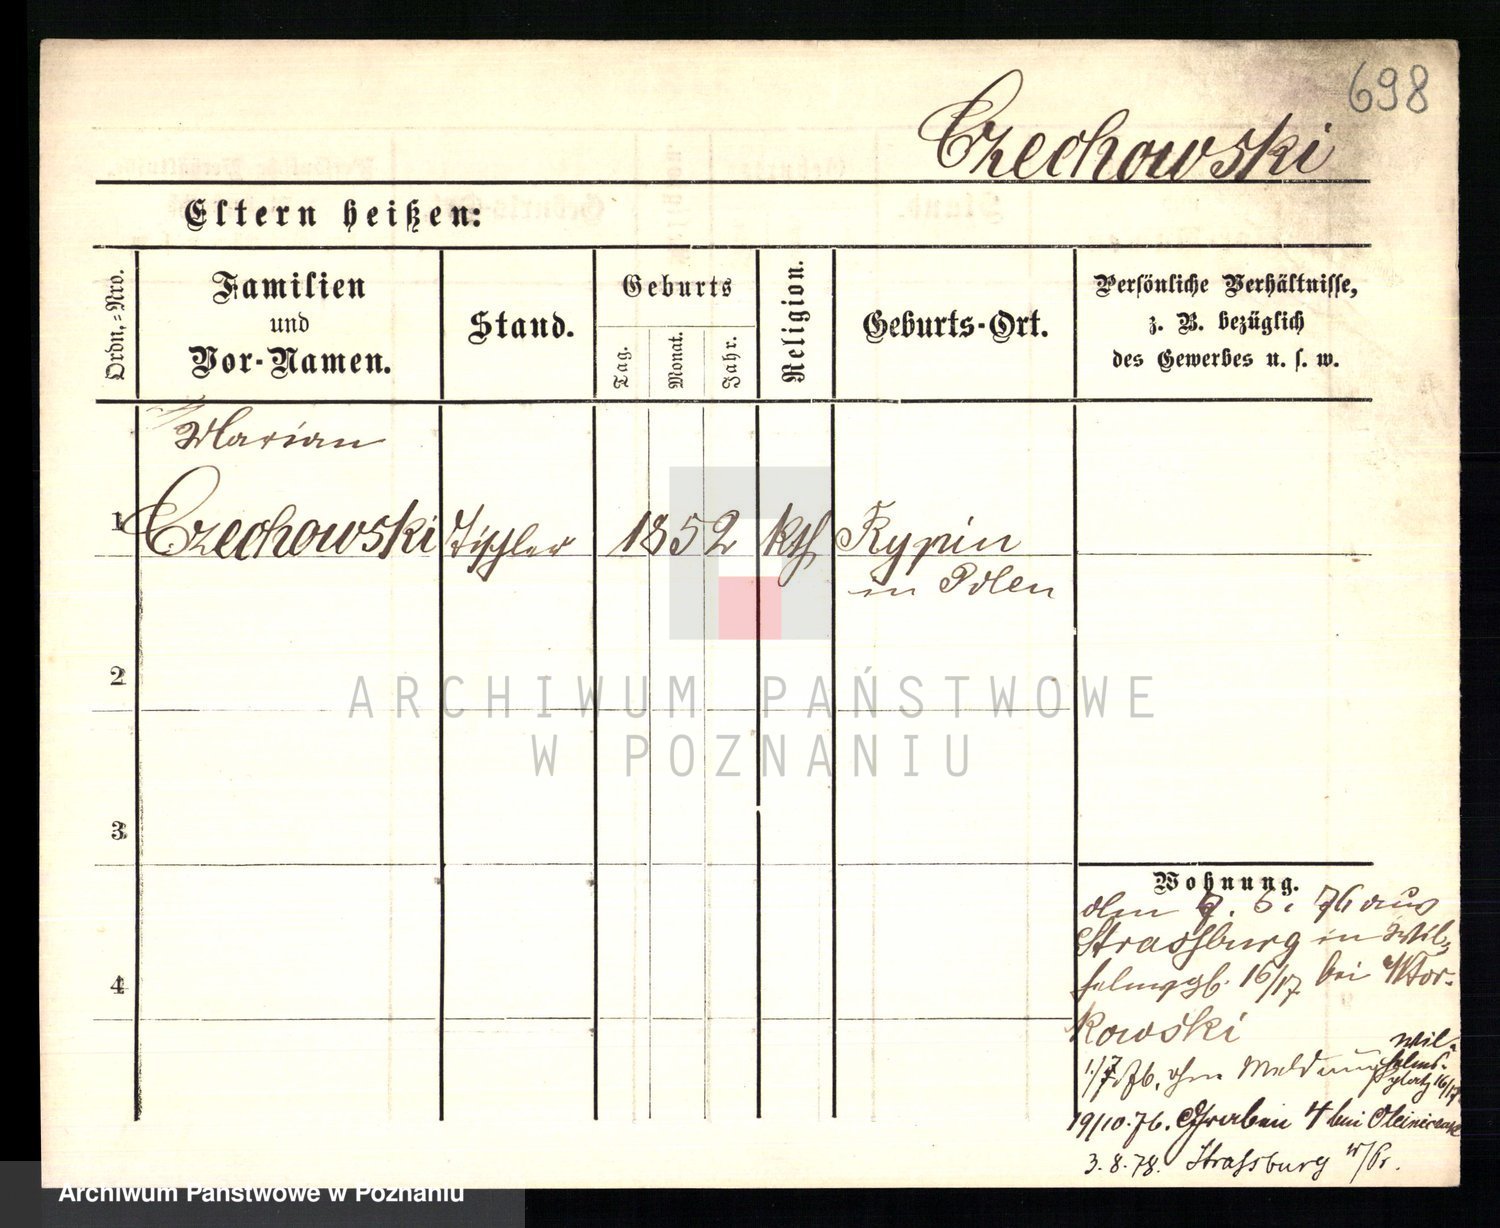 698
Czechowski
Eltern heißen:
Ordn.-Nro.
Familien
und
Vor-Namen.
Stand.
Geburts
Tag.
Monat.
Jahr.
Religion.
Geburts-Ort.
Persönliche Verhältnisse,
z. B. bezüglich
des Gewerbes u. s. w.
Marian
1 Czechowski Tischler 1852 kth Rypin
in Polen
2
ARCHIWUM PAŃSTWOWE
W POZNANIU
3
4
Wohnung.
den 7. 5. 76 aus
Strassburg in Wil-
16/17 bei
kowski
1/7 76. ohne Meldung Wil-
helms-
platz 16/17
19/10.76. Graben 4 bei
3.8.78. Strassburg W/Pr.
Archiwum Państwowe w Poznaniu